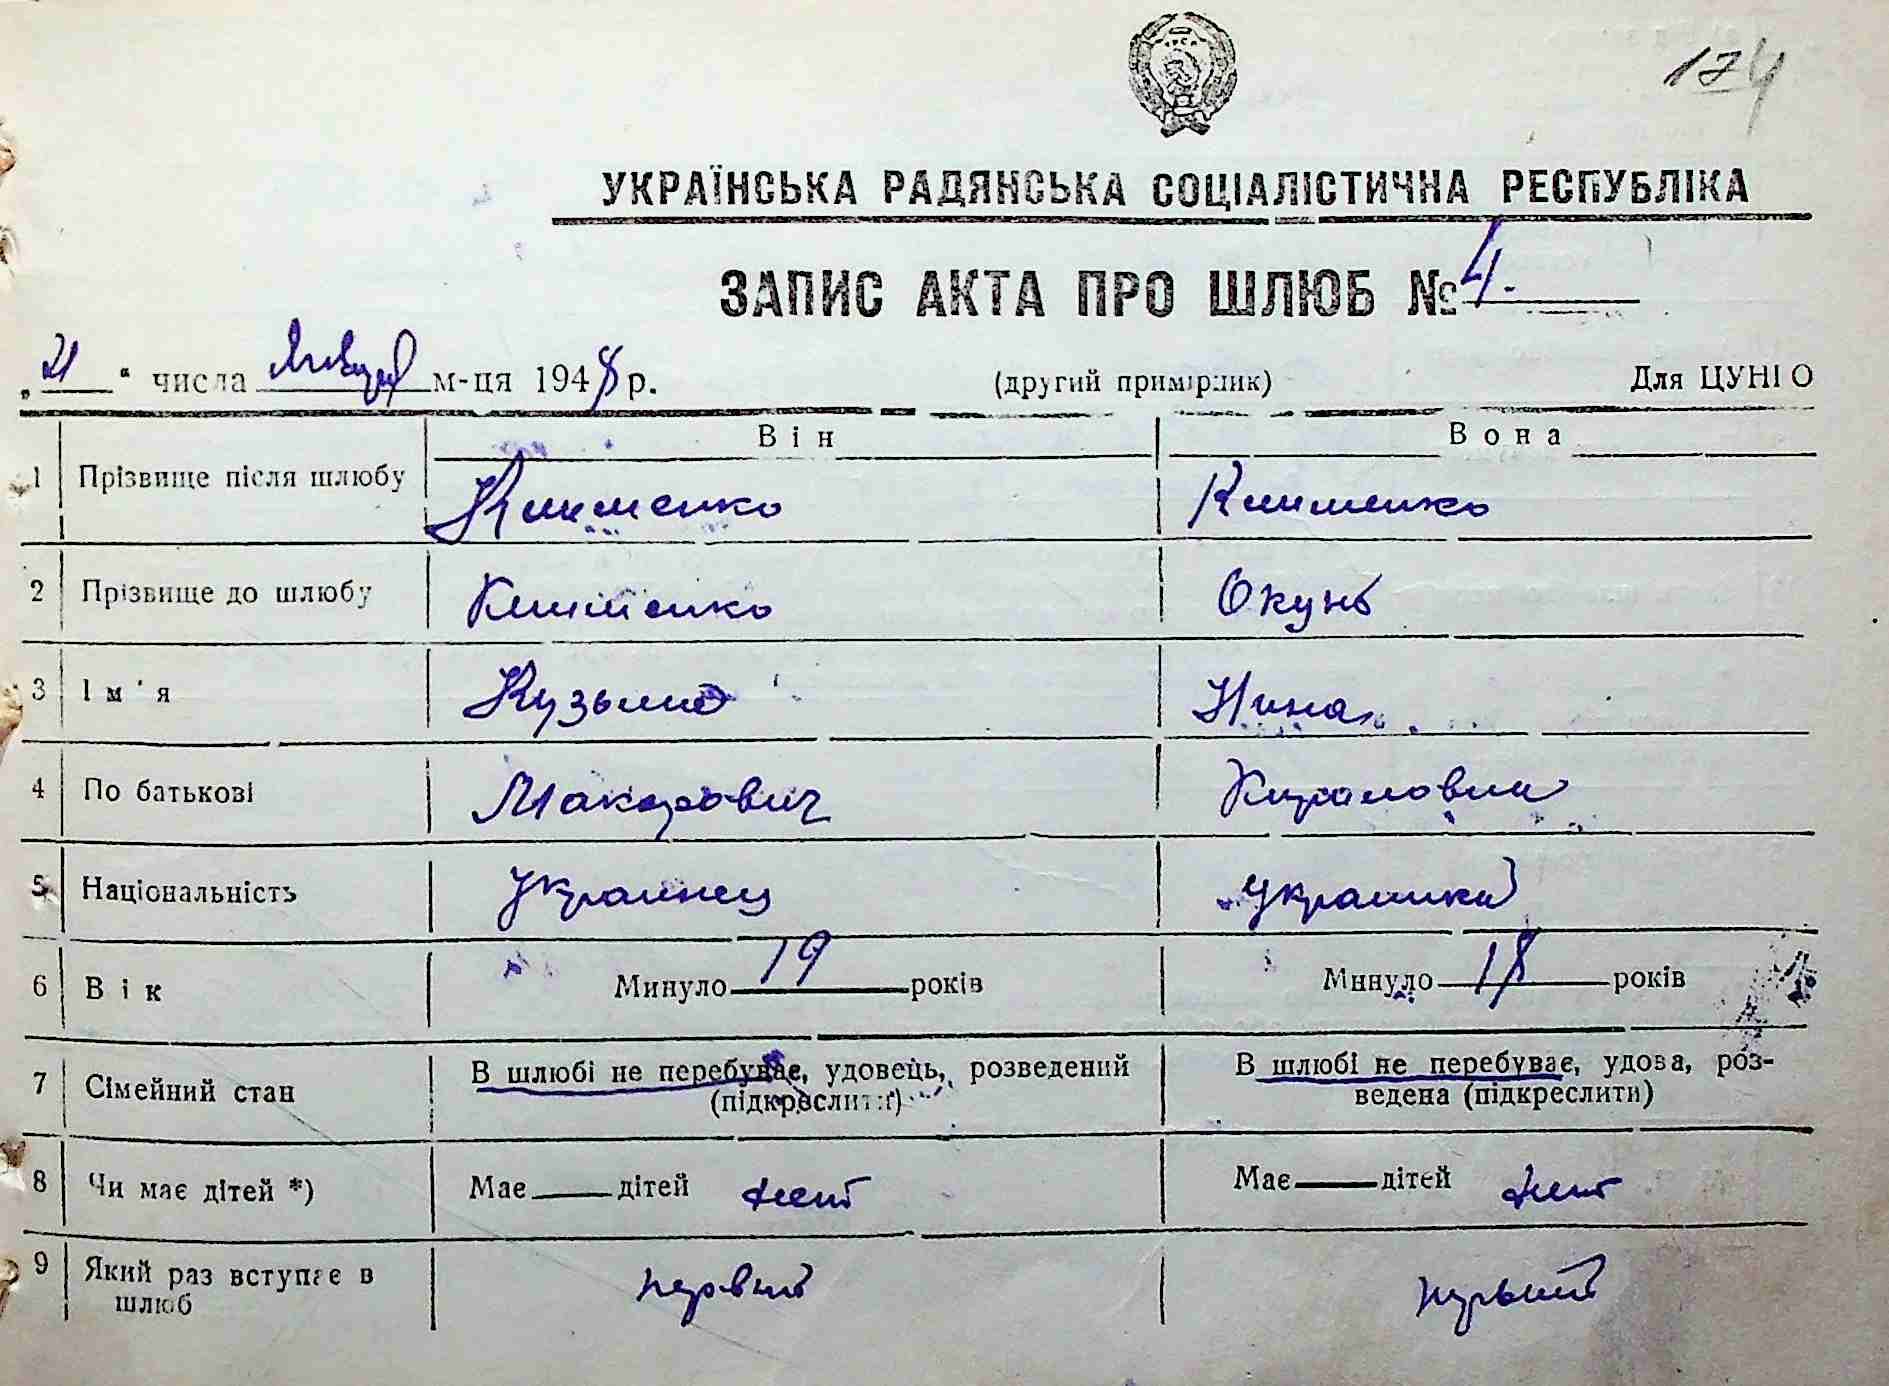 174
УКРАЇНСЬКА РАДЯНСЬКА СОЦІАЛІСТИЧНА РЕСПУБЛІКА
ЗАПИС АКТА ПРО ШЛЮБ № 4.
„21“ числа Января м-ця 1948 р. (другий примірник) Для ЦУНГО
Він Вона
1 Прізвище після шлюбу Клименко Клименко
2 Прізвище до шлюбу Клименко Окунь
3 Ім'я Кузьма Нина
4 По батькові Макарович
5 Національність Украинец Украинка
6 Вік Минуло 19 років Минуло 18 років
7 Сімейний стан В шлюбі не перебуває, удовець, розведений В шлюбі не перебуває, удова, роз-
(підкреслити) ведена (підкреслити)
8 Чи має дітей *) Має дітей нет Має дітей нет
9 Який раз вступає в первый первый
шлюб